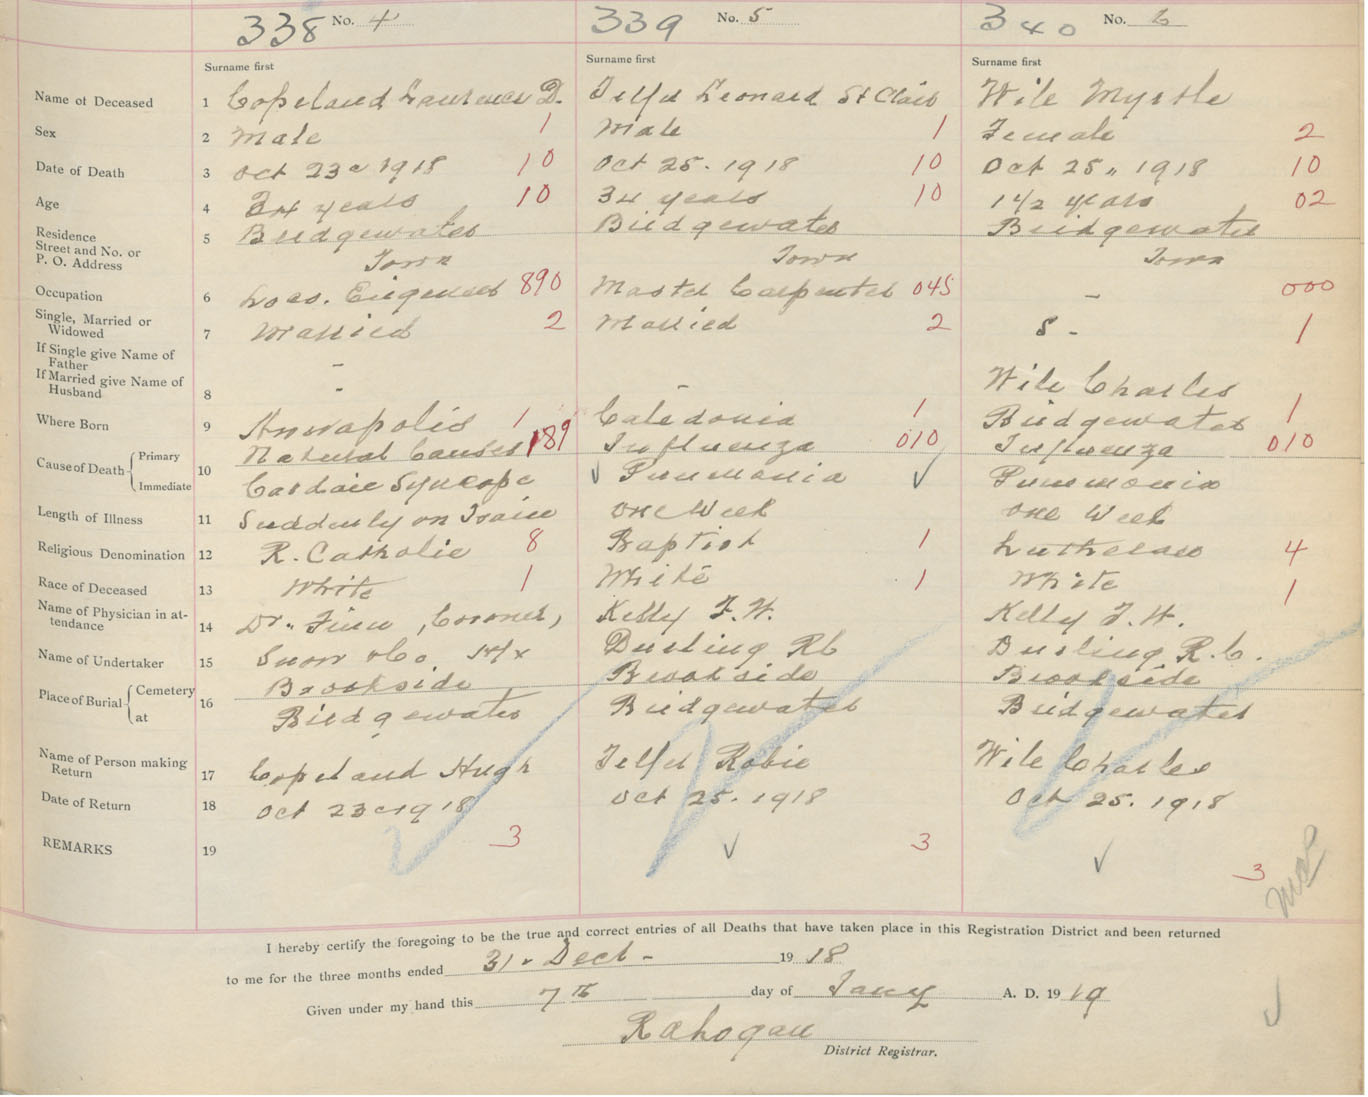 338 No. 4 339 No. 5 340 No. 6
Surname first Surname first Surname first
Name of Deceased 1 Copeland Laurence D. Telfer Leonard St Clair Wile Myrtle
Sex 2 Male 1 Male 1 Female 2
Date of Death 3 Oct 23 1918 10 Oct 25. 1918 10 Oct 25 " 1918 10
Age 4 34 years 10 34 years 10 1 1/2 years 02
Residence
Street and No. or
P. O. Address 5 Bridgewater Bridgewater Bridgewater
Town Town Town
Occupation 6 Loco. Engineer 890 Master Carpenter 045 - 000
Single, Married or
Widowed 7 Married 2 Married 2 S - 1
If Single give Name of
Father -
If Married give Name of
Husband 8 - - Wile Charles
Where Born 9 Annapolis 1 Caledonia 1 Bridgewater 1
Cause of Death { Primary Natural Causes 189 Influenza 010 Influenza 010
10
Immediate Cardiac Syncope ✓ Pneumonia ✓ Pneumonia
Length of Illness 11 Suddenly on Train One Week One Week
Religious Denomination 12 R. Catholic 8 Baptist 1 Lutheran 4
Race of Deceased 13 White 1 White 1 White 1
Name of Physician in at-
tendance 14 Dr. Finn, Coroner, Kelly F. W. Kelly F. W.
Name of Undertaker 15 Snow & Co. Hfx Darling RC Darling R.C.
Place of Burial { Cemetery Brookside Brookside Brookside
16
at Bridgewater Bridgewater Bridgewater
Name of Person making
Return 17 Copeland Hugh Telfer Robie Wile Charles
Date of Return 18 Oct 23 1918 Oct 25. 1918 Oct 25. 1918
REMARKS 19 3 ✓ 3 ✓ 3
I hereby certify the foregoing to be the true and correct entries of all Deaths that have taken place in this Registration District and been returned
to me for the three months ended 31 Dect - 1918
Given under my hand this 7th day of Jany A. D. 1919
RAHogan
District Registrar.